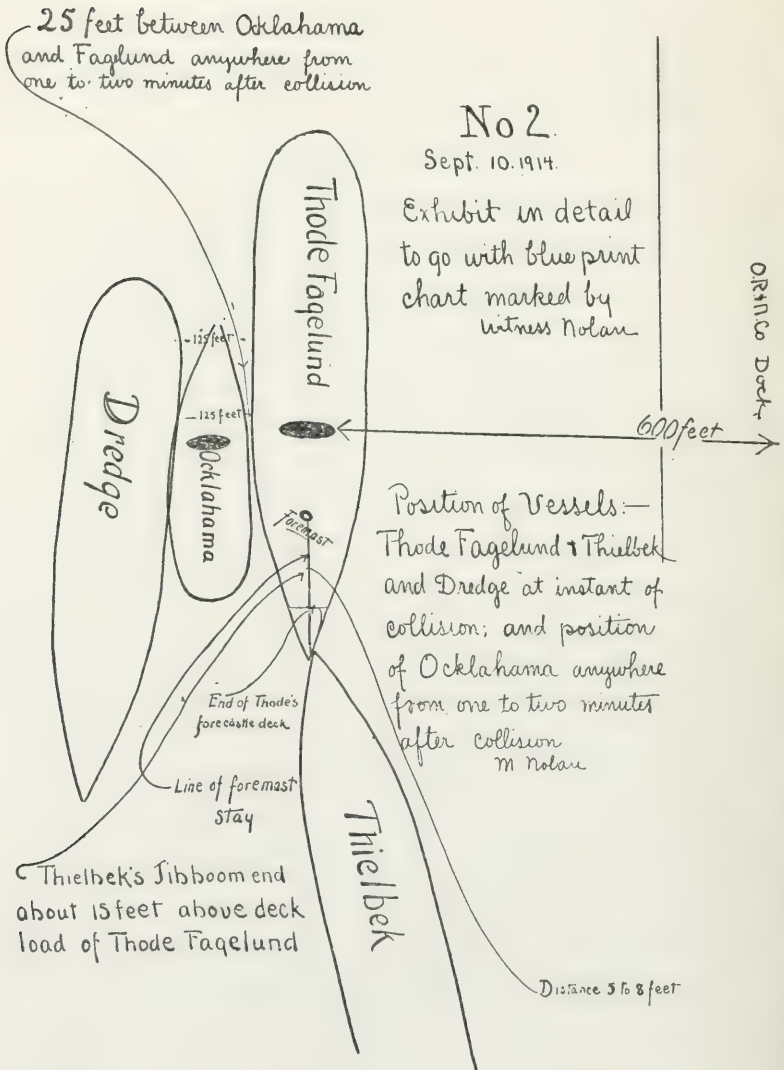 25 feet between Ocklahama
and Fagelund anywhere from
one to two minutes after collision
No 2.
Sept. 10. 1914.
Exhibit in detail
to go with blue print
chart marked by
witness Nolan
O.R.& N.Co Dock,
Thode Fagelund
125 feet
125 feet
600 feet
Dredge
Ocklahama
Foremast
Position of Vessels:—
Thode Fagelund & Thielbek
and Dredge at instant of
collision; and position
of Ocklahama anywhere
from one to two minutes
after collision
M Nolan
End of Thode's
forecastle deck
Line of foremast
stay
Thielbek
Thielbek's Jibboom end
about 15 feet above deck
load of Thode Fagelund
Distance 5 to 8 feet